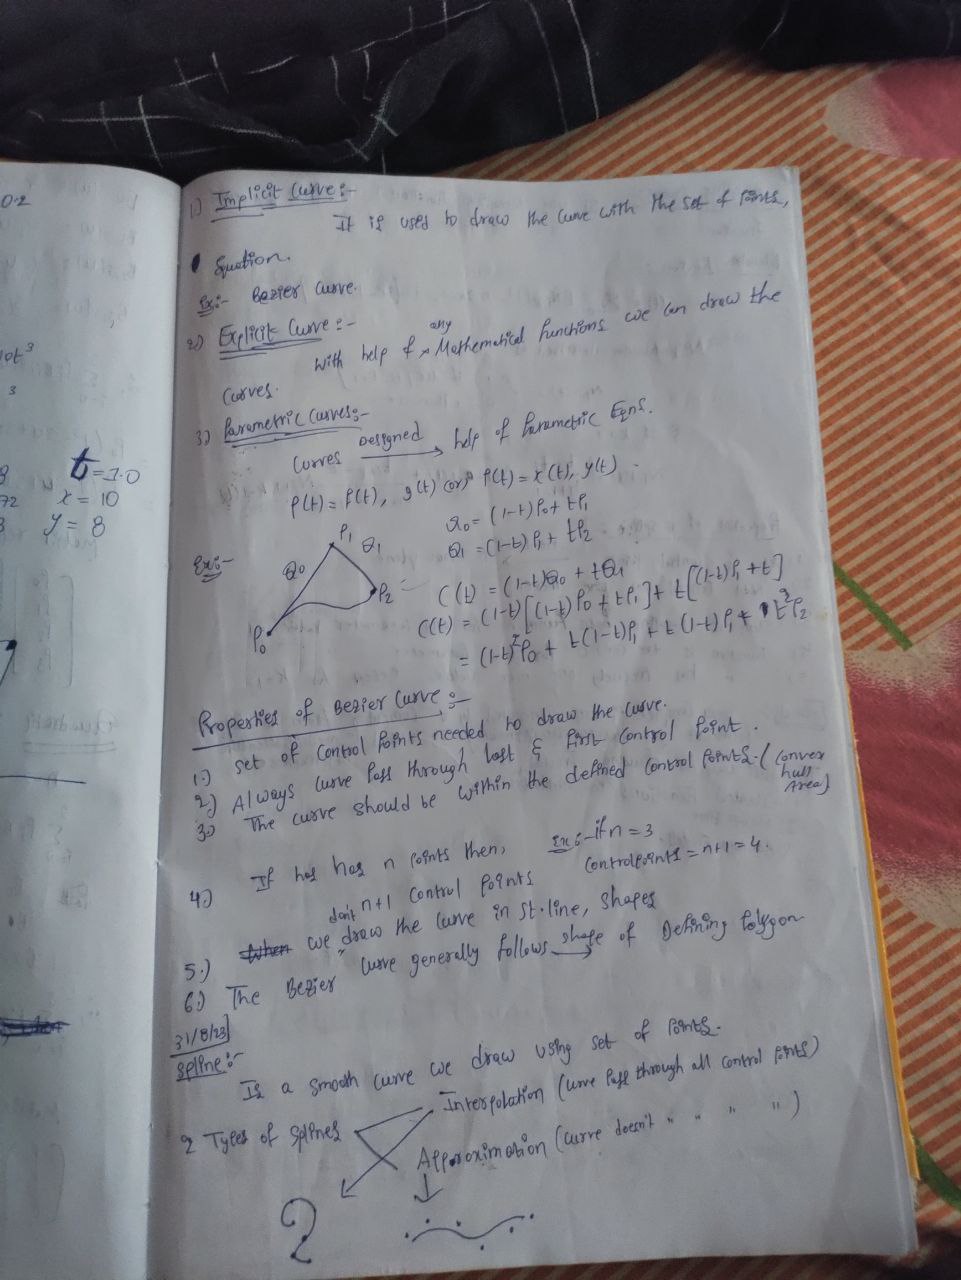 0.2
3
3
72
8
t=1.0
x = 10
y = 8
1) Implicit Curve :-
It is used to draw the curve with the set of Points,
Equation.
Ex:- Bezier curve.
2) Explicit Curve :-
With help of any Mathematical functions we can draw the
Curves.
3) Parametric Curves:-
Curves Designed → help of Parametric Eqns.
P(t) = f(t), g(t) (or) P(t) = x(t), y(t)
Ex:-
P0 P1 P2 Q0 Q1
Q0 = (1-t)P0 + tP1
Q1 = (1-t)P1 + tP2
C(t) = (1-t)Q0 + tQ1
C(t) = (1-t)[(1-t)P0 + tP1] + t[(1-t)P1 + t]
= (1-t)²P0 + t(1-t)P1 + t(1-t)P1 + t²P2
Properties of Bezier Curve :-
1.) set of control Points needed to draw the curve.
2.) Always curve Pass through last & first control Point.
3.) The curve should be within the defined control Points.(Convex
hull
Area)
4.) If has has n Points then, Ex:- if n = 3
n+1 control Points controlpoints = n+1 = 4.
5.) we don't draw the curve in st.line, shapes
6.) The Bezier curve generally follows → shape of Defining Polygon
31/8/23]
Spline :-
Is a smooth curve we draw using set of Points.
2 Types of splines
Interpolation (curve Pass through all control points)
Approximation (curve doesn't " " " ")